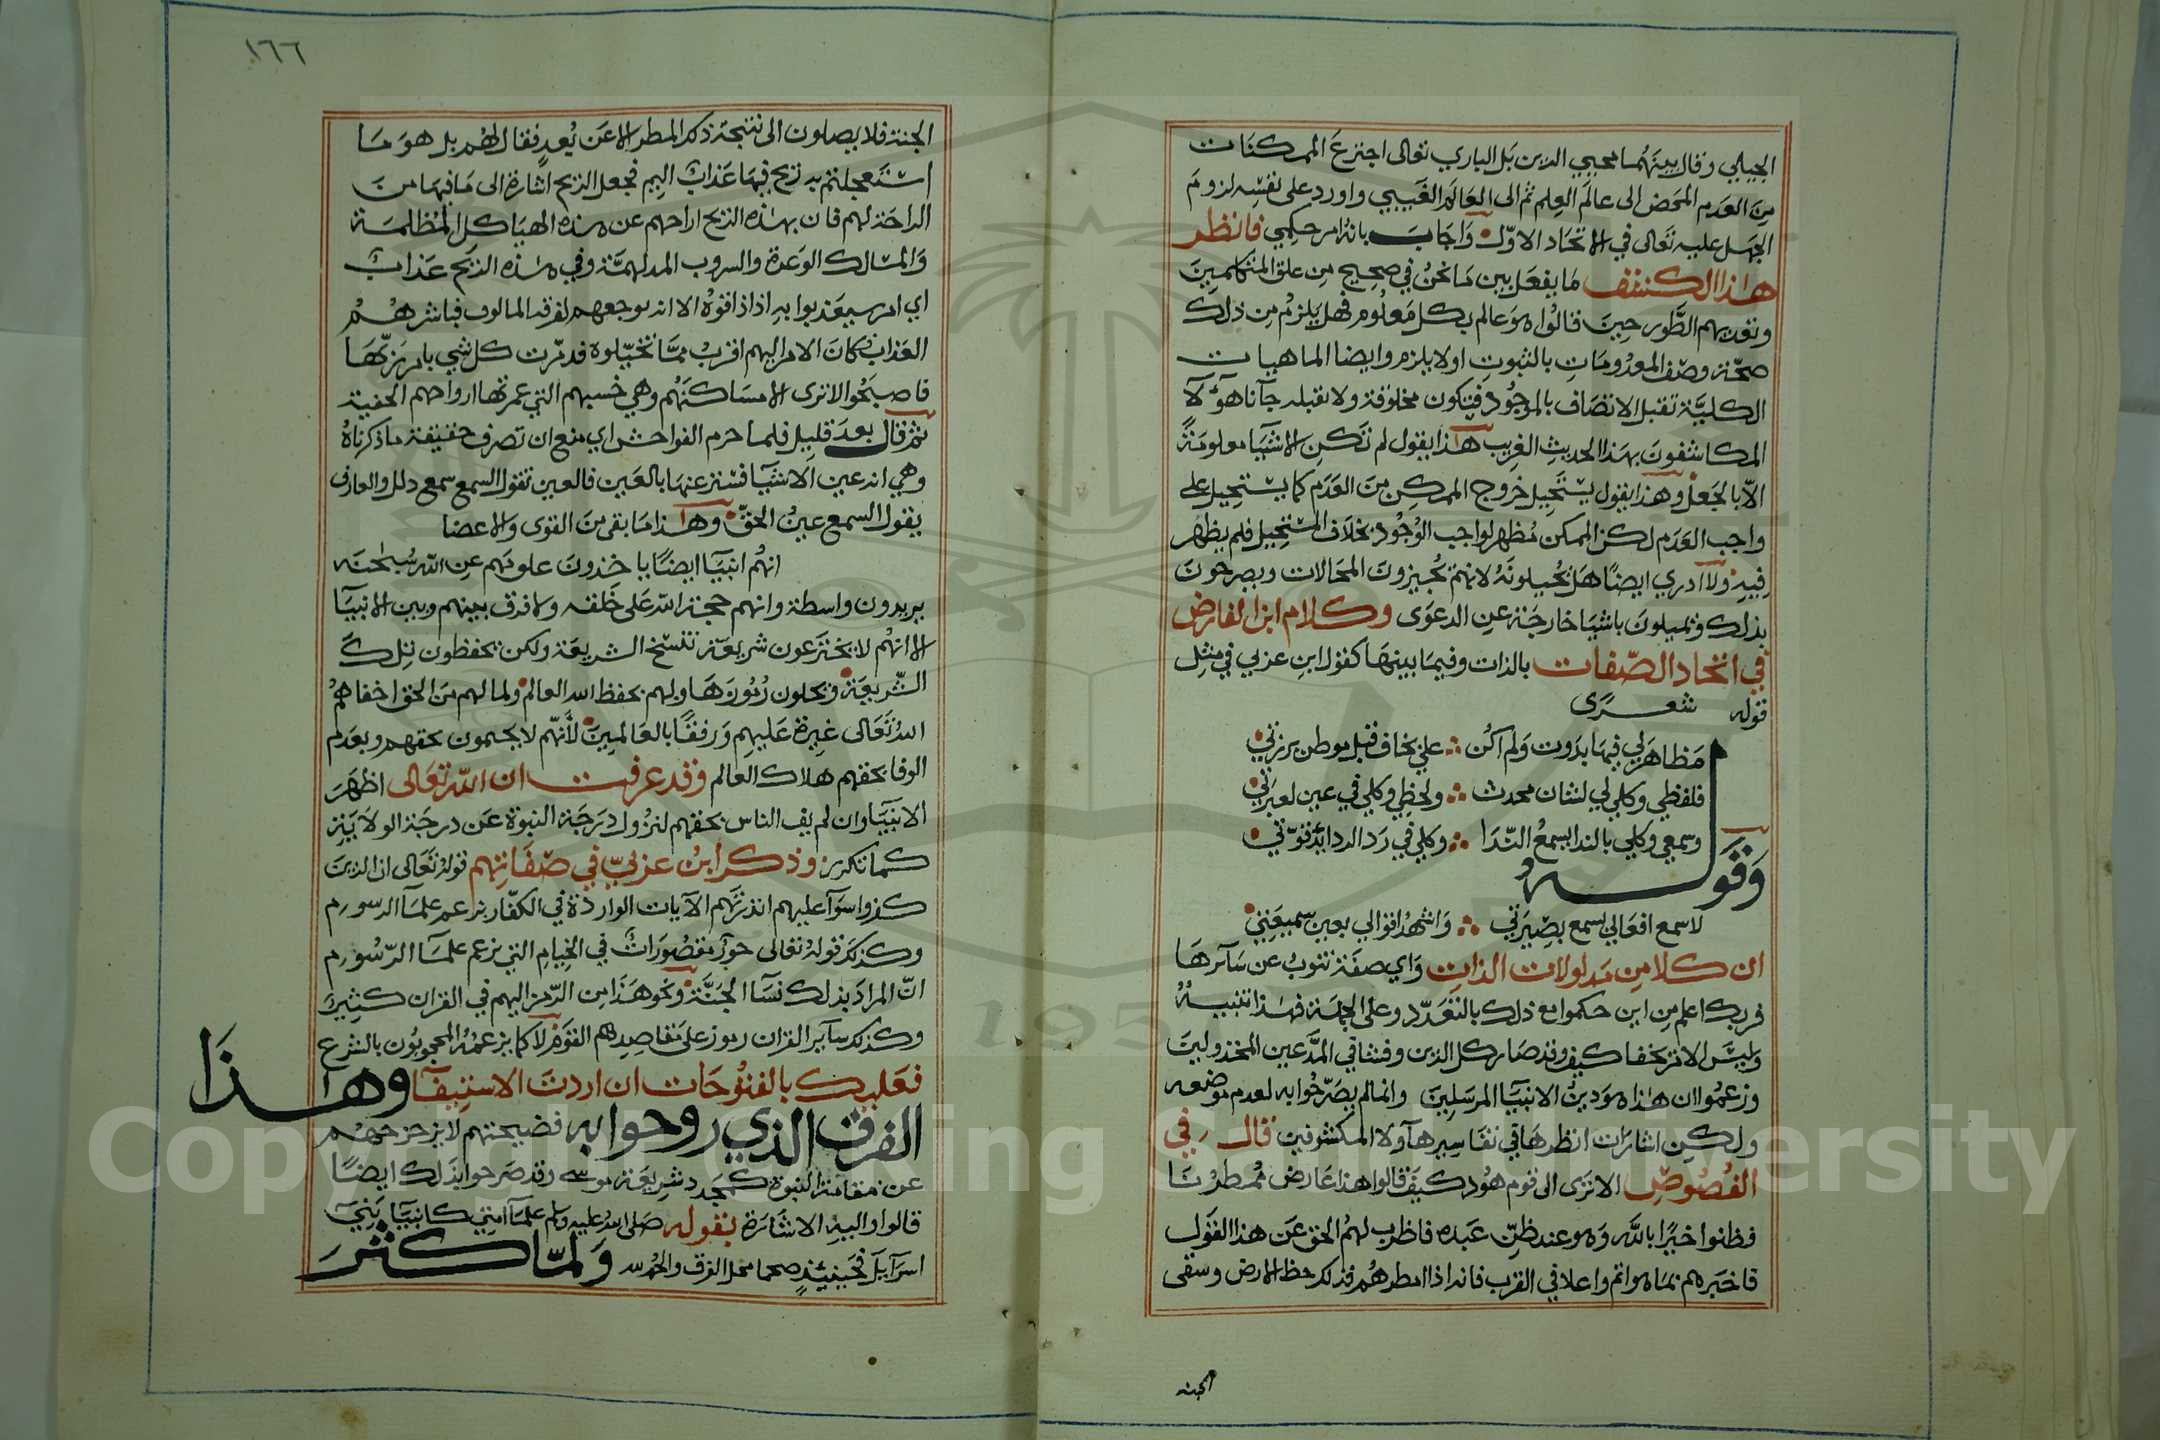 الجيلي وقال بينهما محيي الدين بل الباري تعالى اخترع الممكنات
من العدم المحض الى عالم العلم ثم الى العالم الغيبي واورد على نفسه لزوم
الجهل عليه تعالى في الاتحاد الاول واجاب بانه امر حكمي فانظر
هذا الكشف ما يفعل بين ما نحن في صحيح من علق المتكلمين
وتعديهم الطور حين قالوا هو عالم بكل معلوم فهل يلزم من ذلك
صحة وصف المعدومات بالثبوت اولا يلزم وايضا الماهيات
الكلية تقبل الاتصاف بالموجود فتكون مخلوقة ولا تقبله جآنا هؤلآ
المكاشفون بهذا الحديث الغريب هذا يقول لم تكن الاشيا معلومة
الا بالجعل وهذا يقول يستحيل خروج الممكن من العدم كما يستحيل على
واجب العدم لكن الممكن مظهر لواجب الوجود بخلاف المستحيل فلم يظهر
فيه ولا ادري ايضا هل يحيلونه لانهم يجيزون المحالات ويصرحون
بذلك ويميلون باشيا خارجة عن الدعوى وكلام ابن الفارض
في اتحاد الصفات بالذات وفيما بينها كقول ابن عربي في مثل
قوله شعرى
مظاهر لي فيها بدوت ولم اكن علي بخاف قبل موطن برزتي
فلفظي وكلي لي لسان محدث ولحظي وكلي في عين لعبرتي
وسمعي وكلي بالندا يسمع الندا وكلي في رد الردا يد قوتي
وقوله
لاسمع افعالي بسمع بصيرتي واشهد اقوالي بعين سميعتي
ان كلا من مدلولات الذات واي صفة تنوب عن سآئرها
فربك اعلم من اين حكموا مع ذلك بالتعدد وعلى الجملة فهذا تنبيه
وليس الامر بخفا كيف وقد صار كل الدين وفشا في المدعين المخذولين
وزعموا ان هذا هو دين الانبيآ المرسلين وانما لم يصرحوا به لعدم موضعه
ولكن اشارات انظرها في تفاسير هآولا المكشوفين قال في
الفصوص الا ترى الى قوم هود كيف قالوا هذا عارض ممطرنا
فظنوا خيرا بالله وهو عند ظن عبده فاظرب لهم الحق عن هذا القول
فاخبرهم بما هو اتم واعلا في القرب فانه اذا امطرهم فذلك حظ الارض وسقى
الجنه
١٦٦
الجنة فلا يصلون الى نتيجة ذكر المطر الا عن بعد فقال لهم بل هو ما
استعجلتم به ريح فيها عذاب اليم فجعل الريح اشارة الى ما فيها من
الراحة لهم فان بهذه الريح اراحهم عن هذه الهياكل المظلمة
والمسالك الوعرة والسروب المدلهمة وفي هذه الريح عذاب
اي امر سيعذبوا به اذا ذاقوه الا انه يوجعهم لفرقة المالوف فباشرهم
العذاب فكان الامر اليهم اقرب مما تخيلوه فدمرت كل شي بامر ربها
فاصبحوا لا ترى الا مساكنهم وهي خسبهم التي عمرتها ارواحهم الحقية
ثم قال بعد قليل فلما حرم الفواحش اي منع ان تصرف حقيقة ما ذكرناه
وهي انه عين الاشيآ فستر عنها بالعين فالعين تقول السمع سمع دلل والعارف
يقول السمع عين الحق وهذا ما بقى من القوى والاعضا
انهم انبيآ ايضا ياخذون علومهم عن الله سبحنه
يريدون واسطة وانهم حجة الله على خلقه ولا فرق بينهم وبين الانبيآ
الا انهم لا يخترعون شريعة تنسخ الشريعة ولكن يحفظون تلك
الشريعة ويحلون رموزها ولهم يحفظ الله العالم ولما لهم من الحق اخفاهم
الله تعالى غيرة عليهم ورفقا بالعالمين لأنهم لا يحمون بحقهم وبعدم
الوفا بحقهم هلاك العالم وقد عرفت ان الله تعالى اظهر
الانبيآ وان لم يف الناس بحقهم لنزول درجة النبوة عن درجة الولاية
كما تكرر وذكر ابن عربي في صفاتهم قوله تعالى ان الذين
كفروا سوآ عليهم انذرتهم الآيات الواردة في الكفار بزعم علمآ الرسوم
وكذلك قوله تعالى حور مقصورات في الخيام التي يزعم علمآ الرسوم
ان المراد بذلك نسآ الجنة ونحو هذا من الرمز اليهم في القران كثير
وكذلك سآير القران رموز على مقاصدهم القوم لا كما يزعمه المحجوبون بالشرع
فعليك بالفتوحات ان اردت الاستيفآ وهذا
الفرق الذي روحوا به فضيحتهم لا يزحزحهم
عن مقامة النبوة كمجدد شريعة موسى وقد صرحوا بذلك ايضا
قالوا واليه الاشارة بقوله صلى الله عليه وسلم علمآ امتي كانبيآ بني
اسرآيل فحينئذ صحما محل الفرق والحمد لله ولما كثر
Copyright © King Saud University
1957